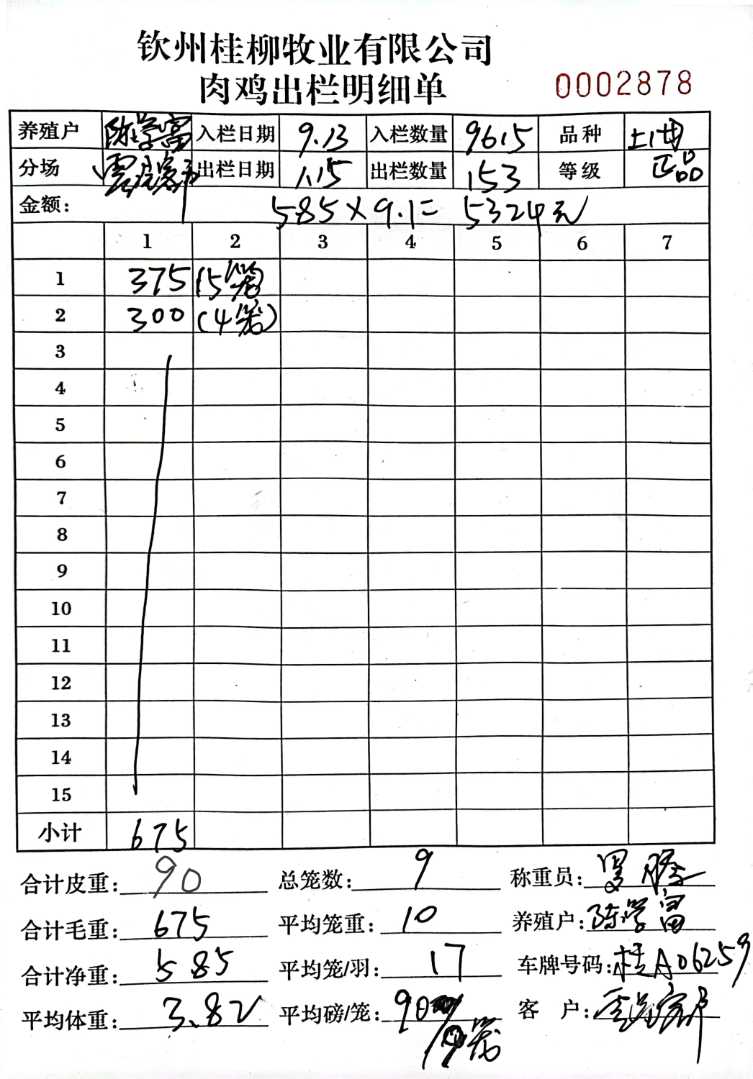 钦州桂柳牧业有限公司
肉鸡出栏明细单 0002878
养殖户 陈学富 入栏日期 9.13 入栏数量 9615 品种
分场 出栏日期 1.15 出栏数量 153 等级 正品
金额: 585×9.1= 5324元
1 2 3 4 5 6 7
1 375 (5笼)
2 300 (4笼)
3
4
5
6
7
8
9
10
11
12
13
14
15
小计 675
合计皮重: 90 总笼数: 9 称重员:
合计毛重: 675 平均笼重: 10 养殖户: 陈学富
合计净重: 585 平均笼/羽: 17 车牌号码: 桂A06259
平均体重: 3.82 平均磅/笼: 90 /9笼 客 户: